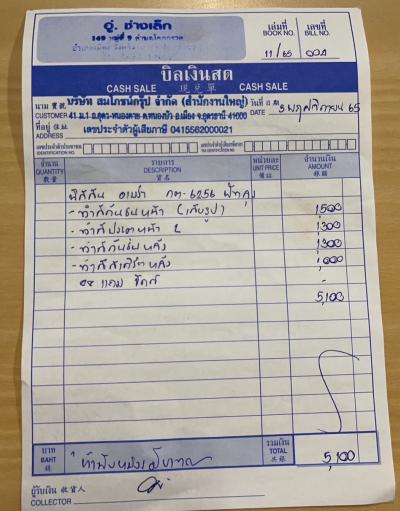 อู่. ช่างเล็ก
149 หมู่ที่ 9
เล่มที่ BOOK NO. 11/65
เลขที่ BILL NO. 001
บิลเงินสด
CASH SALE 現兌單 CASH SALE
นาม 寶號 CUSTOMER บริษัท สมโภชน์กรุ๊ป จำกัด (สำนักงานใหญ่)
วันที่ DATE 3 พฤศจิกายน 65
41 ม.1 ถ.อุดร-หนองคาย ต.หนองบัว อ.เมือง จ.อุดรธานี 41000
ที่อยู่ 住址 ADDRESS เลขประจำตัวผู้เสียภาษี 0415562000021
เลขประจำตัวประชาชน IDENTIFICATION NO.
เลขประจำตัวผู้เสียภาษี TAX IDENTIFICATION NO.
จำนวน QUANTITY 數量
รายการ DESCRIPTION 貨名
หน่วยละ UNIT PRICE 價註
จำนวนเงิน AMOUNT 錶銀
นิสสัน กต-6256
- ทำสีกันชนหน้า (เก็บรูป) 1,500
- ทำสี หน้า L 1,300
- ทำสีกันชนหลัง 1,300
- ทำสี หลัง 1,000
แถม ขัดสี -
5,100
บาท BAHT 銖 ห้าพันหนึ่งร้อยบาท
รวมเงิน TOTAL 共銀 5,100
ผู้รับเงิน 收貨人
COLLECTOR